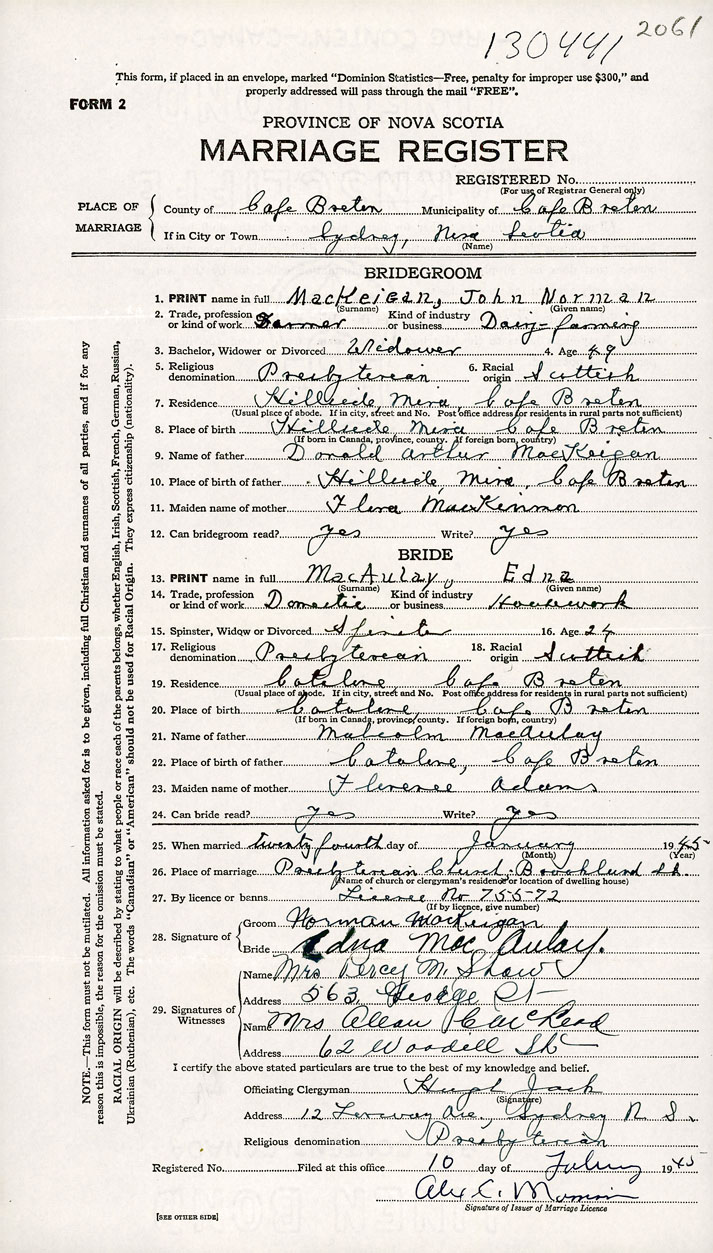 130441 2061
This form, if placed in an envelope, marked "Dominion Statistics—Free, penalty for improper use $300," and
properly addressed will pass through the mail "FREE".
FORM 2
PROVINCE OF NOVA SCOTIA
MARRIAGE REGISTER
REGISTERED No.
(For use of Registrar General only)
PLACE OF MARRIAGE
County of Cape Breton Municipality of Cape Breton
If in City or Town Sydney, Nova Scotia
(Name)
BRIDEGROOM
1. PRINT name in full MacKeigan, John Norman
(Surname) (Given name)
2. Trade, profession or kind of work Farmer Kind of industry or business Dairy-farming
3. Bachelor, Widower or Divorced Widower 4. Age 49
5. Religious denomination Presbyterian 6. Racial origin Scottish
7. Residence Hillside, Mira, Cape Breton
(Usual place of abode. If in city, street and No. Post office address for residents in rural parts not sufficient)
8. Place of birth Hillside Mira Cape Breton
(If born in Canada, province, county. If foreign born, country)
9. Name of father Donald Arthur MacKeigan
10. Place of birth of father Hillside, Mira, Cape Breton
11. Maiden name of mother Flora MacKinnon
12. Can bridegroom read? yes Write? yes
BRIDE
13. PRINT name in full MacAulay, Edna
(Surname) (Given name)
14. Trade, profession or kind of work Domestic Kind of industry or business Housework
15. Spinster, Widow or Divorced Spinster 16. Age 24
17. Religious denomination Presbyterian 18. Racial origin Scottish
19. Residence Catalone, Cape Breton
(Usual place of abode. If in city, street and No. Post office address for residents in rural parts not sufficient)
20. Place of birth Catalone, Cape Breton
(If born in Canada, province, county. If foreign born, country)
21. Name of father Malcolm MacAulay
22. Place of birth of father Catalone, Cape Breton
23. Maiden name of mother Florence Adams
24. Can bride read? yes Write? yes
25. When married twenty fourth day of January 1945
(Month) (Year)
26. Place of marriage Presbyterian Church, Brookland St.
(Name of church or clergyman's residence or location of dwelling house)
27. By licence or banns License No 755-72
(If by licence, give number)
28. Signature of
Groom Norman MacKeigan
Bride Edna MacAulay.
29. Signatures of Witnesses
Name Mrs Percy M. Shaw
Address 563 George St
Name Mrs Allan MacLeod
Address 62 Woodill St
I certify the above stated particulars are true to the best of my knowledge and belief.
Officiating Clergyman Hugh Jack
(Signature)
Address 12 Ave, Sydney N. S.
Religious denomination Presbyterian
Registered No. Filed at this office 10 day of 1945
Alex C.
Signature of Issuer of Marriage Licence
[SEE OTHER SIDE]
NOTE.—This form must not be mutilated. All information asked for is to be given, including full Christian and surnames of all parties, and if for any
reason this is impossible, the reason for the omission must be stated.
RACIAL ORIGIN will be described by stating to what people or race each of the parents belongs, whether English, Irish, Scottish, French, German, Russian,
Ukrainian (Ruthenian), etc. The words "Canadian" or "American" should not be used for Racial Origin. They express citizenship (nationality).